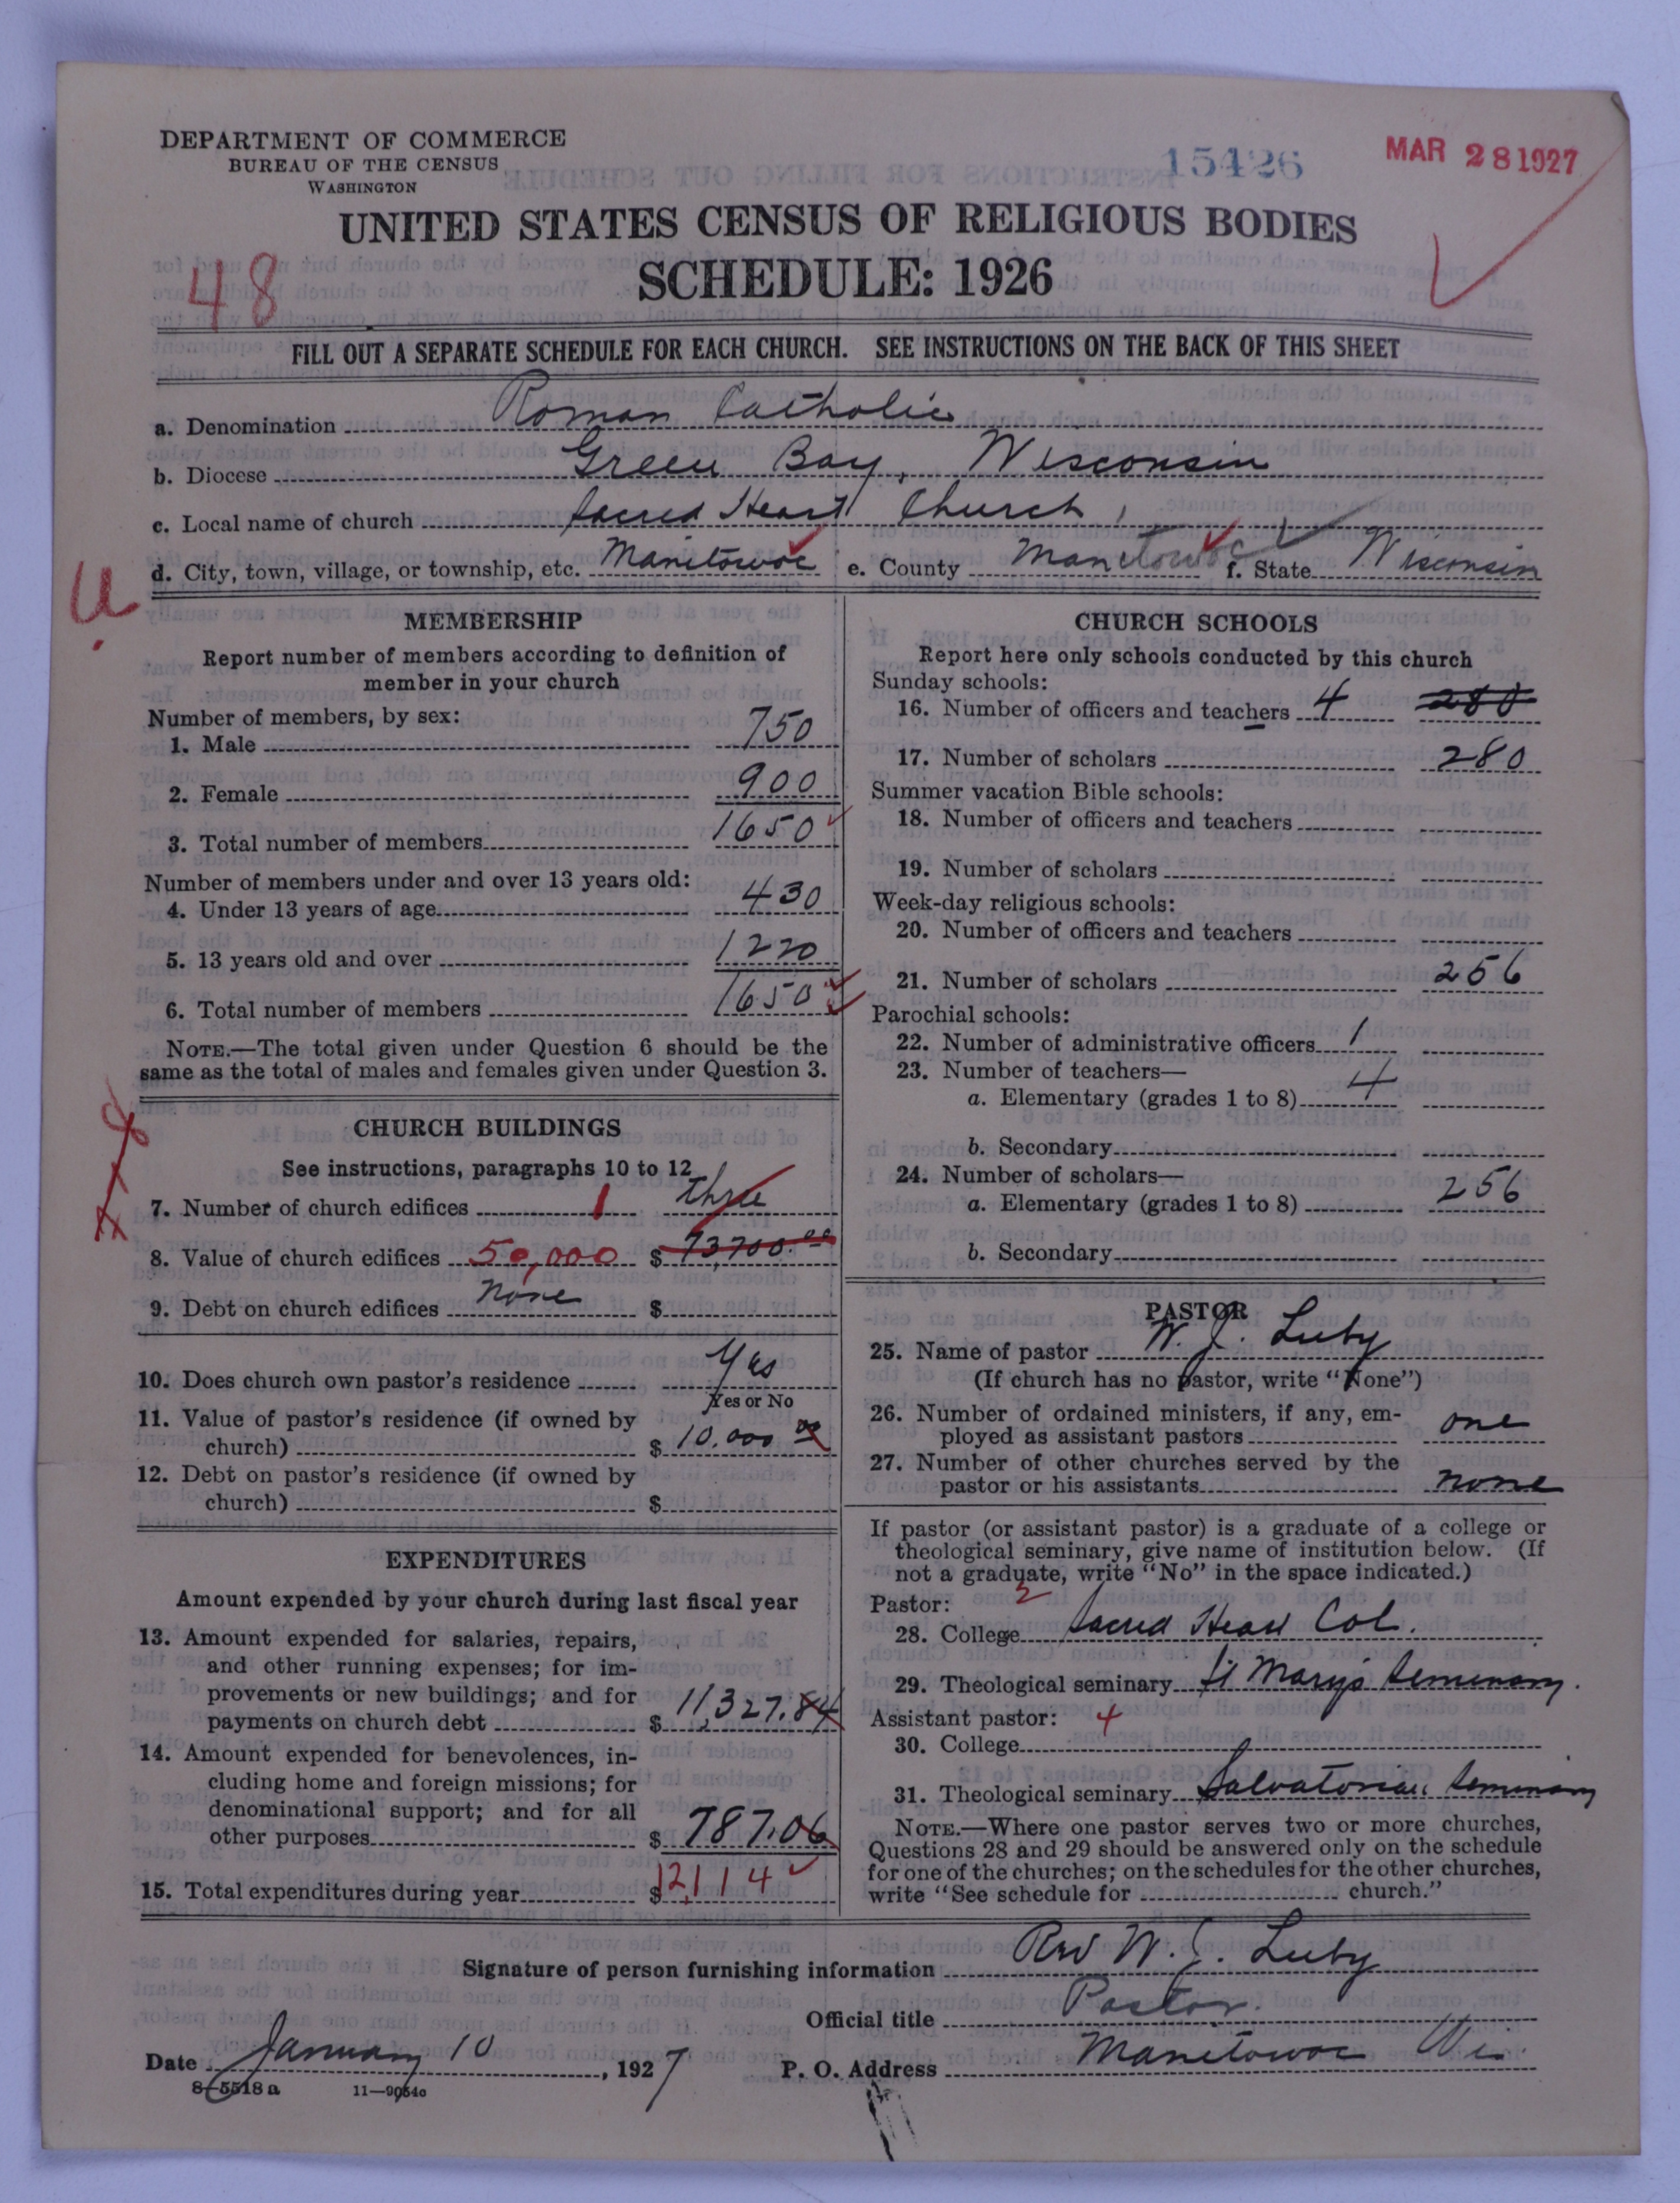 DEPARTMENT OF COMMERCE
BUREAU OF THE CENSUS
WASHINGTON
15426
MAR 28 1927
UNITED STATES CENSUS OF RELIGIOUS BODIES
SCHEDULE: 1926
48
FILL OUT A SEPARATE SCHEDULE FOR EACH CHURCH. SEE INSTRUCTIONS ON THE BACK OF THIS SHEET
a. Denomination Roman Catholic
b. Diocese Green Bay, Wisconsin
c. Local name of church Sacred Heart Church,
d. City, town, village, or township, etc. Manitowoc e. County Manitowoc f. State Wisconsin
U
MEMBERSHIP
Report number of members according to definition of
member in your church
Number of members, by sex:
1. Male 750
2. Female 900
3. Total number of members 1650
Number of members under and over 13 years old:
4. Under 13 years of age 430
5. 13 years old and over 1220
6. Total number of members 1650
NOTE.—The total given under Question 6 should be the
same as the total of males and females given under Question 3.
CHURCH BUILDINGS
See instructions, paragraphs 10 to 12
7. Number of church edifices 1 three
8. Value of church edifices 50,000 $ 73,700.00
9. Debt on church edifices none $
10. Does church own pastor's residence Yes
Yes or No
11. Value of pastor's residence (if owned by
church) $ 10,000 00
12. Debt on pastor's residence (if owned by
church) $
EXPENDITURES
Amount expended by your church during last fiscal year
13. Amount expended for salaries, repairs,
and other running expenses; for im-
provements or new buildings; and for
payments on church debt $ 11,327.84
14. Amount expended for benevolences, in-
cluding home and foreign missions; for
denominational support; and for all
other purposes $ 787.06
15. Total expenditures during year $ 12,114
CHURCH SCHOOLS
Report here only schools conducted by this church
Sunday schools:
16. Number of officers and teachers 4 280
17. Number of scholars 280
Summer vacation Bible schools:
18. Number of officers and teachers
19. Number of scholars
Week-day religious schools:
20. Number of officers and teachers
21. Number of scholars 256
Parochial schools:
22. Number of administrative officers 1
23. Number of teachers—
a. Elementary (grades 1 to 8) 4
b. Secondary
24. Number of scholars—
a. Elementary (grades 1 to 8) 256
b. Secondary
PASTOR
25. Name of pastor W. J. Luby
(If church has no pastor, write "None")
26. Number of ordained ministers, if any, em-
ployed as assistant pastors one
27. Number of other churches served by the
pastor or his assistants none
If pastor (or assistant pastor) is a graduate of a college or
theological seminary, give name of institution below. (If
not a graduate, write "No" in the space indicated.)
Pastor: 2
28. College Sacred Heart Col.
29. Theological seminary St Marys Seminary.
Assistant pastor: 4
30. College
31. Theological seminary Salvatorian Seminary
NOTE.—Where one pastor serves two or more churches,
Questions 28 and 29 should be answered only on the schedule
for one of the churches; on the schedules for the other churches,
write "See schedule for church."
Signature of person furnishing information Rev W. J. Luby
Official title Pastor.
Date January 10, 1927 P. O. Address Manitowoc Wis.
8-5518a 11—9054c